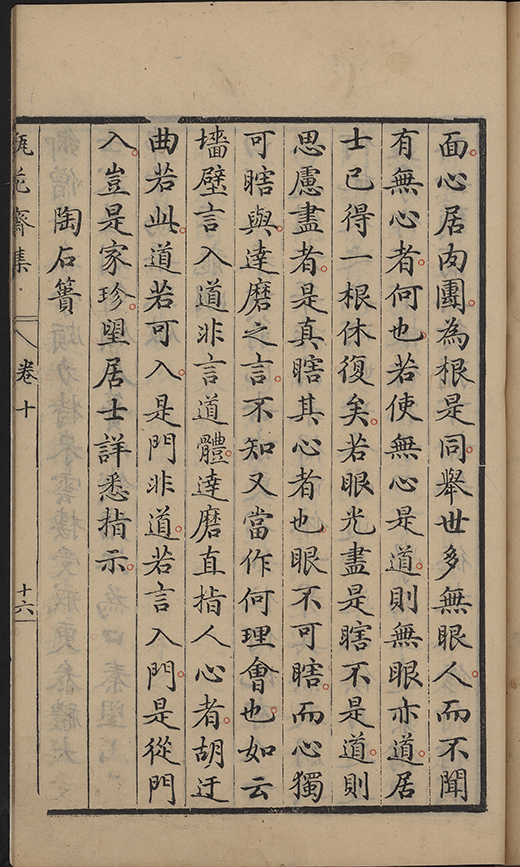 面心居肉團為根是同舉世多無眼人而不聞
有無心者何也若使無心是道則無眼亦道居
士已得一根休復矣若眼光盡是瞎不是道則
思慮盡者是真瞎其心者也眼不可瞎而心獨
可瞎與達磨之言不知又當作何理會也如云
墻壁言入道非言道體達磨直指人心者胡迂
曲若此道若可入是門非道若言入門是從門
入豈是家珍望居士詳悉指示
陶石簣
瓶花齋集 卷十 十六